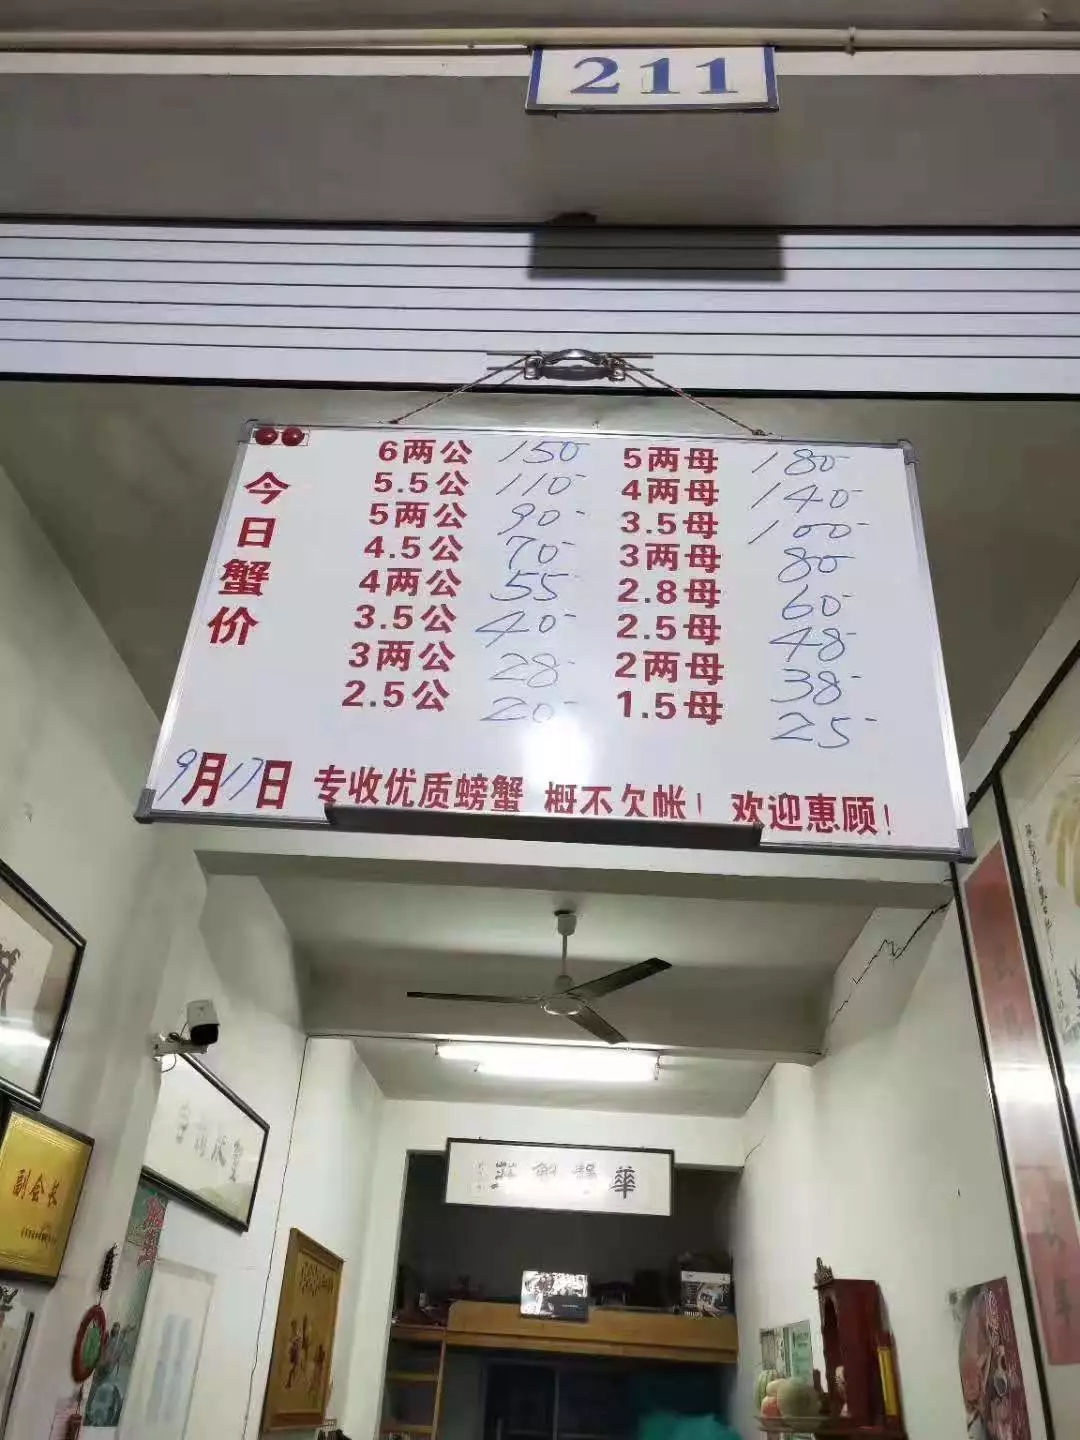 211
今日蟹价
6两公 150 5两母 180
5.5公 110 4两母 140
5两公 90 3.5母 100
4.5公 70 3两母 80
4两公 55 2.8母 60
3.5公 40 2.5母 48
3两公 28 2两母 38
2.5公 20 1.5母 25
9月17日 专收优质螃蟹 概不欠帐！欢迎惠顾！
副会长